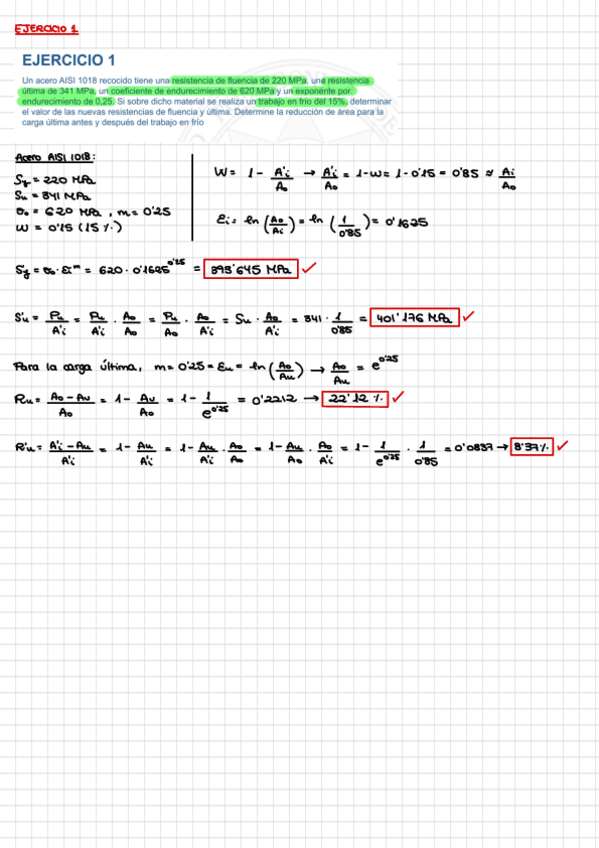 EJERCICIO 1
EJERCICIO 1
Un acero AISI 1018 recocido tiene una resistencia de fluencia de 220 MPa, una resistencia
última de 341 MPa, un coeficiente de endurecimiento de 620 MPa y un exponente por
endurecimiento de 0,25. Si sobre dicho material se realiza un trabajo en frío del 15%, determinar
el valor de las nuevas resistencias de fluencia y última. Determine la reducción de área para la
carga última antes y después del trabajo en frío
Acero AISI 1018:
Sy = 220 MPa
Su = 341 MPa
σ₀ = 620 MPa, m = 0'25
W = 0'15 (15 %)
W = 1 - A'i/A₀ → A'i/A₀ = 1-W = 1-0'15 = 0'85 ≈ Ai/A₀
Ei = ln (A₀/Ai) = ln (1/0'85) = 0'1625
S'y = σ₀ · Ei^m = 620 · 0'1625^0'25 = 393'645 MPa ✓
S'u = Pu/A'i = Pu/A'i · A₀/A₀ = Pu/A₀ · A₀/A'i = Su · A₀/A'i = 341 · 1/0'85 = 401'176 MPa ✓
Para la carga última, m = 0'25 = Eu = ln (A₀/Au) → A₀/Au = e^0'25
Ru = A₀ - Au/A₀ = 1 - Au/A₀ = 1 - 1/e^0'25 = 0'2212 → 22'12 % ✓
R'u = A'i - Au/A'i = 1 - Au/A'i = 1 - Au/A'i · A₀/A₀ = 1 - Au/A₀ · A₀/A'i = 1 - 1/e^0'25 · 1/0'85 = 0'0837 → 8'37% ✓